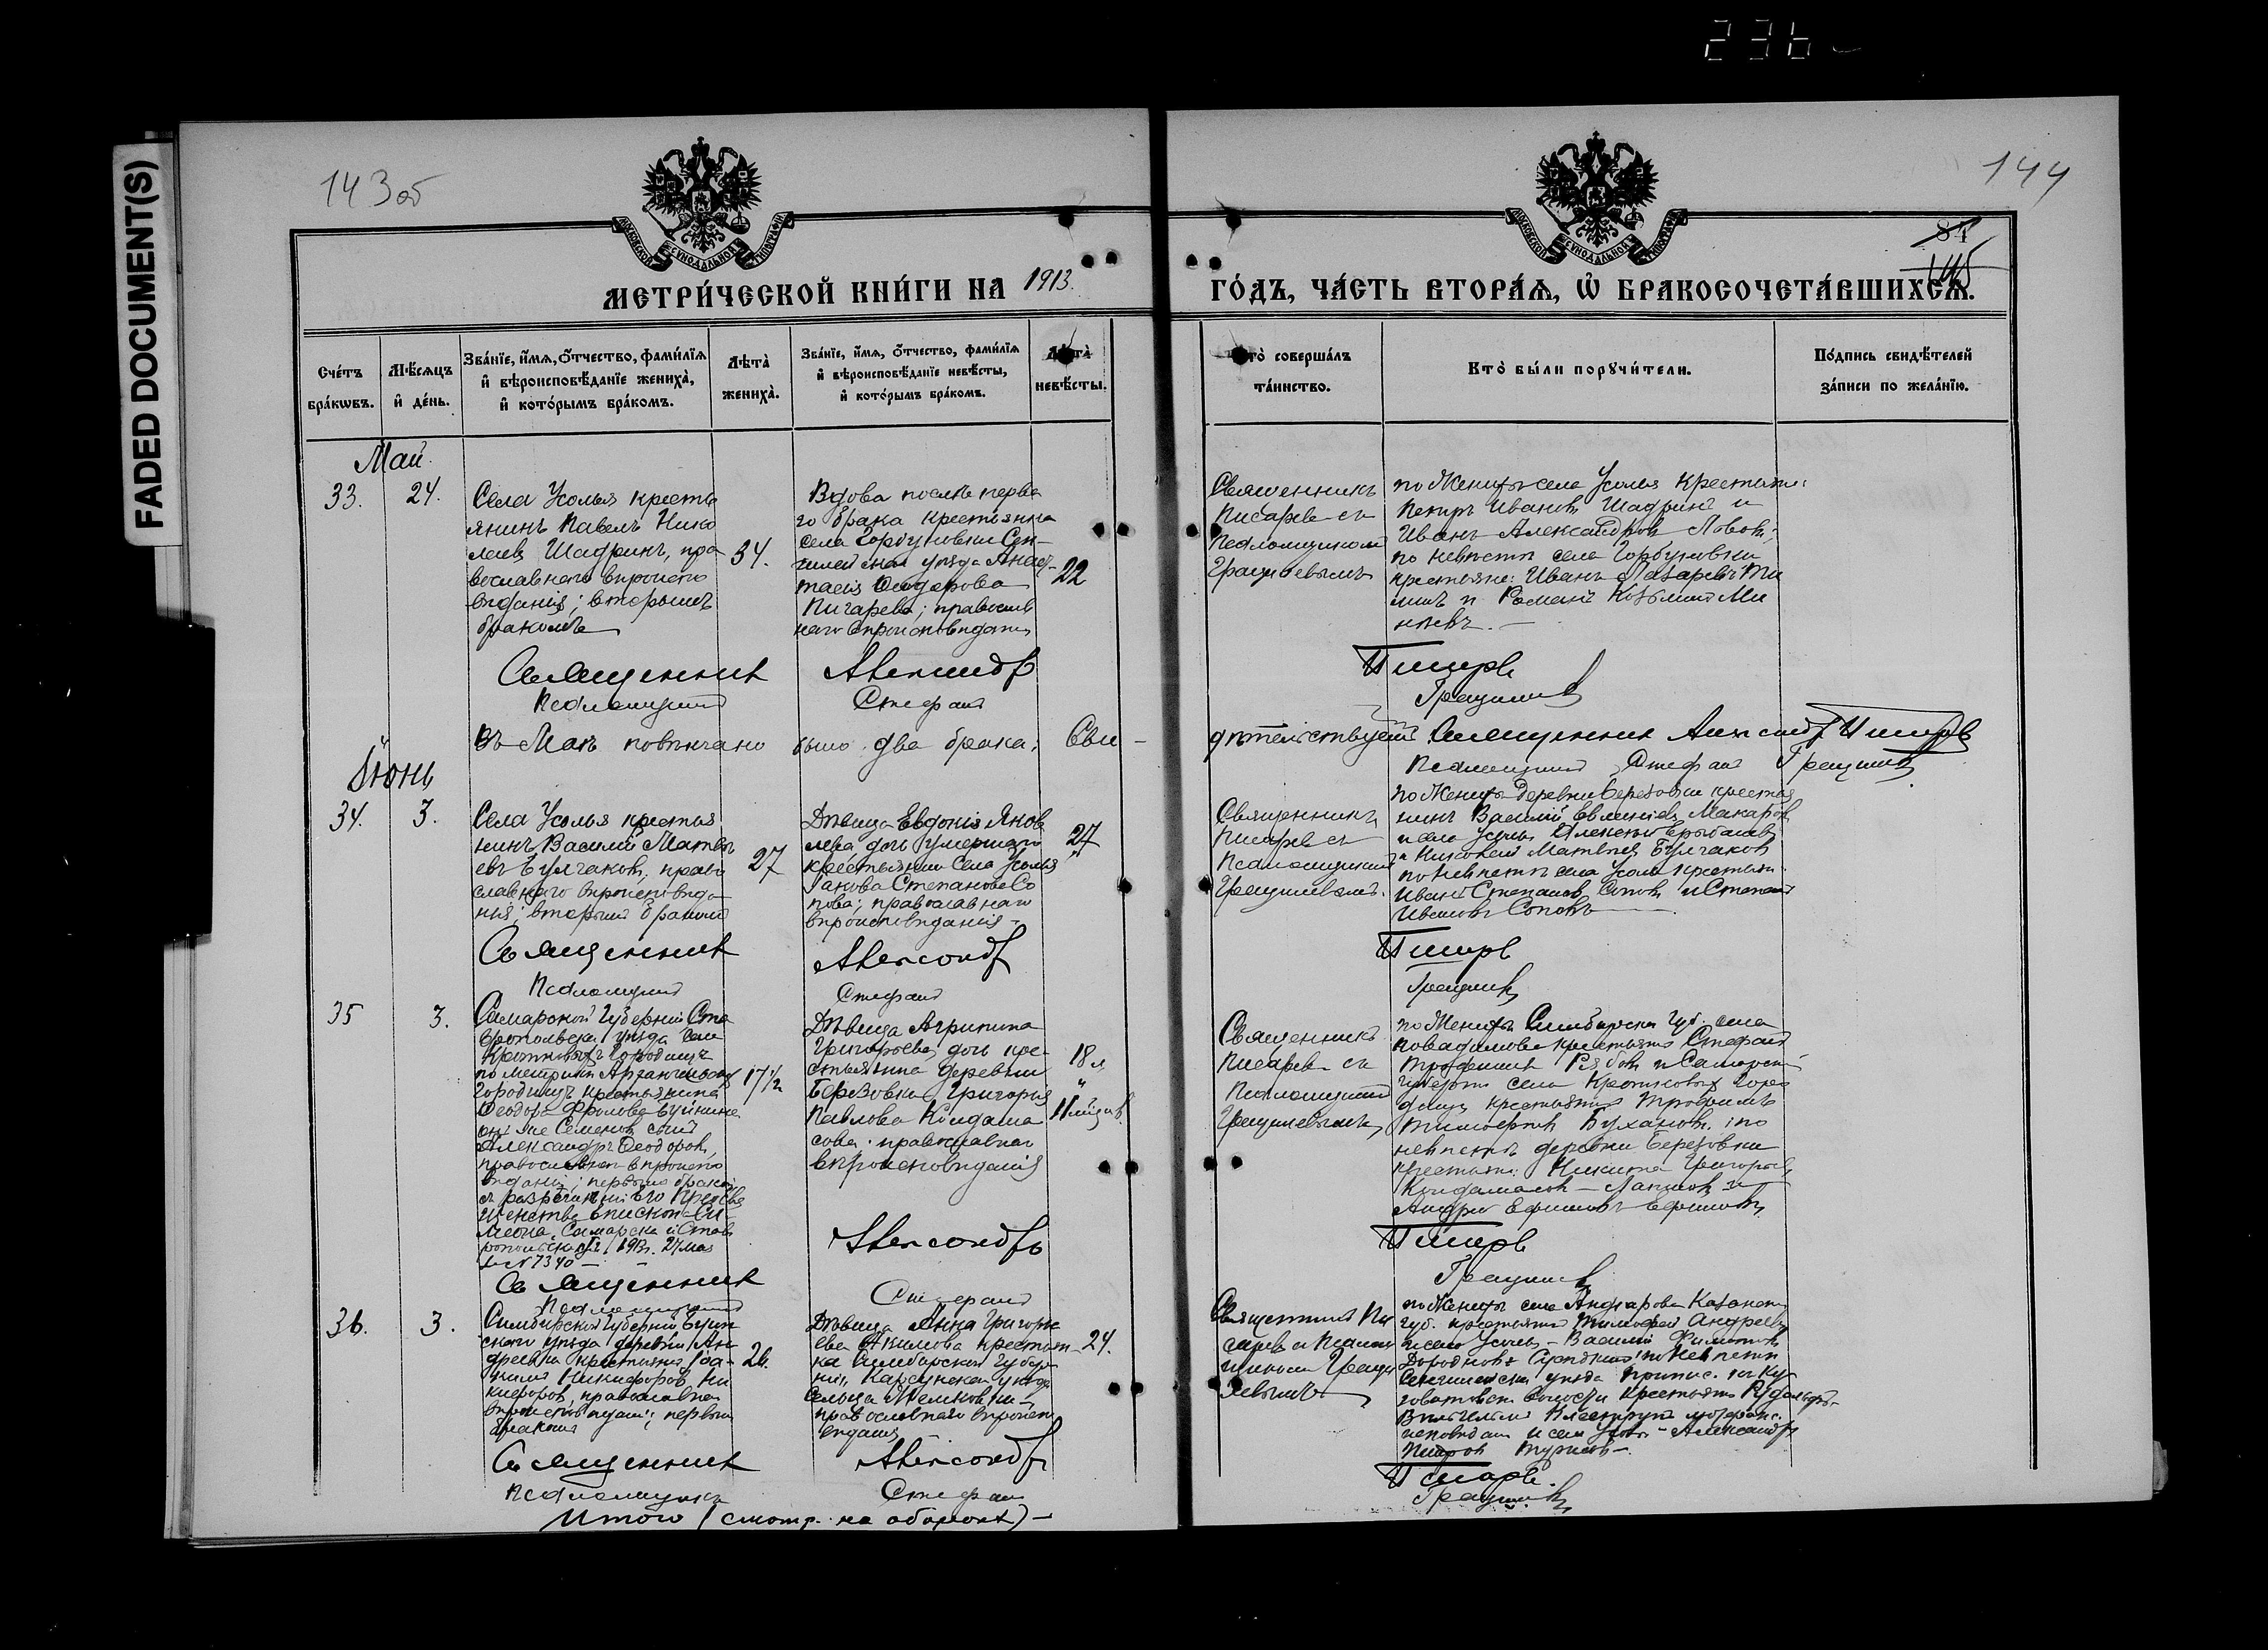 236
FADED DOCUMENT(S)
143 об
144
84
МЕТРИ́ЧЕСКОЙ КНИ́ГИ НА 1913.
ГО́ДЪ, ЧА́СТЬ ВТОРА́Ѧ, Ѡ҆ БРАКОСОЧЕТА́ВШИХСѦ.
Сче́тъ бра́кѡвъ.
Мѣ́сѧцъ и҆ де́нь.
Зва́нїе, и҆́мѧ, ѻ҆́тчество, фами́лїѧ
и҆ вѣроисповѣ́данїе жениха̀,
и҆ кото́рымъ бра́комъ.
Лѣта̀ жениха̀.
Зва́нїе, и҆́мѧ, ѻ҆́тчество, фами́лїѧ
и҆ вѣроисповѣ́данїе невѣ́сты,
и҆ кото́рымъ бра́комъ.
Лѣта̀ невѣ́сты.
Кто̀ соверша́лъ
та́инство.
Кто̀ бы́ли порꙋчи́тели.
По́дпись свидѣ́телей
за́писи по жела́нїю.
Май.
33.
24.
Села Усолья кресть
янинъ Павелъ Нико
лаев Шадринъ, пра
вославнаго вѣроиспо
вѣданія; вторымъ
бракомъ
34.
Вдова послѣ перва
го брака крестьянка
села Горбуновки Сен-
гилейскаго уѣзда Анас-
тасія Ѳеодорова
Пигарева; православ
наго вѣроисповѣданія
22
Священникъ
Писаревъ съ
Псаломщиком
Грацилевымъ
по Женихѣ села Усолья крестьяне:
Петръ Иванов Шадринъ и
Иванъ Александров Лобов;
по невѣстѣ села Горбуновки
крестьяне: Иванъ Лазаревъ
и Романъ Козьмин
Священникъ Александръ Писаревъ
Псаломщикъ Стефанъ Грацилевъ
Въ Маѣ повѣнчано было два брака. Сви-
дѣтельствуетъ Священникъ Александръ Писаревъ
Псаломщикъ Стефанъ Грацилевъ
Іюнь
34.
3.
Села Усолья крестья
нинъ Василій Матвѣ
евъ Булгаков, право
славнаго вѣроисповѣда
нія; вторымъ бракомъ
27
Дѣвица Евдокія Яков
лева дочь умершаго
крестьянина Села Усолья
Іакова Степанова Со
пова; православнаго
вѣроисповѣданія
27
Священникъ
Писаревъ съ
Псаломщикомъ
Грацилевымъ.
по Женихѣ деревни Березовки крестья
нинъ Василій Макаров
и села Усолья Алексѣй
и Матвѣев Булгаков
по невѣстѣ села Усолья крестьяне:
Иванъ Степанов Сопов и Степанъ
Иванов Соповъ
Священникъ Александръ Писаревъ
Псаломщикъ Стефанъ Грацилевъ
35
3.
Самарской Губерніи Ста
вропольскаго уѣзда села
Кротковых Городищъ
по метрикѣ Архангельских
Городищъ крестьянина
Ѳеодора Фролова
он же Семенов сынъ
Александръ Ѳеодоров,
православнаго вѣроиспо
вѣданія; первымъ бракомъ
съ разрѣшенія Его Преосвя
щенства Епископа Си
меона Самарска и Став
ропольскаго 1913 г. 27 мая
за № 7340
17½
Дѣвица Агрипина
Григорьева, дочь кре-
стьянина деревни
Березовки Григорія
Павлова Кондама
сова; православнаго
вѣроисповѣданія
18 л
11 мѣсяцев.
Священникъ
Писаревъ съ
Псаломщикомъ
Грацилевымъ
по Женихѣ Симбирской Губ. села
крестьянин Стефанъ
Трофимов Рябов и Самарской
губерніи села Кротковых Горо
дищъ крестьянин Трофимъ
Тимофеев Буханов; по
невѣстѣ деревни Березовки
крестьяне: Никита Григорьев
Кондамасов - Лапшов и
Андрей Ефимов Ефимовъ
Священникъ Александръ Писаревъ
Псаломщикъ Стефанъ Грацилевъ
36.
3.
Симбирской Губерніи Буин
скаго уѣзда деревни Ан
дреевки крестьянин Іоа-
кимъ Никифоров Ни
кифоров, православнаго
вѣроисповѣданія; первымъ
бракомъ
26.
Дѣвица Анна Григорь
ева Акимова крестьян-
ка Симбирской Губер
ніи, Карсунскаго уѣзда
Сельца
православнаго вѣроиспо
вѣданія
24.
Священникъ Пи
саревъ съ Псалом
щикомъ Граци
левымъ
по Женихѣ села Казанской
губ. крестьянин Тимофей Андреев
и села Усолья - Василій Филиппов
по невѣстѣ
Сенгилейскаго уѣзда
волости крестьянин Рудольфъ
лютеранс.
исповѣдан. и села Усолья - Александръ
Петров
Священникъ Александръ Писаревъ.
Псаломщикъ Стефанъ Грацилевъ
Итого (смотр. на оборотѣ) -